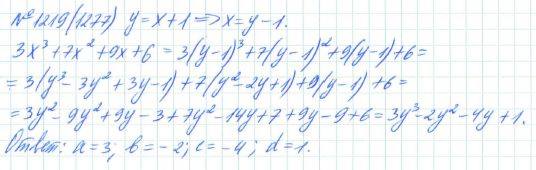 №1219(1277) y = x + 1 => x = y - 1.
3x³ + 7x² + 9x + 6 = 3(y-1)³ + 7(y-1)² + 9(y-1) + 6 =
= 3(y³ - 3y² + 3y - 1) + 7(y² - 2y + 1) + 9(y - 1) + 6 =
= 3y² - 9y² + 9y - 3 + 7y² - 14y + 7 + 9y - 9 + 6 = 3y³ - 2y² - 4y + 1.
Ответ: a = 3; b = -2; c = -4; d = 1.